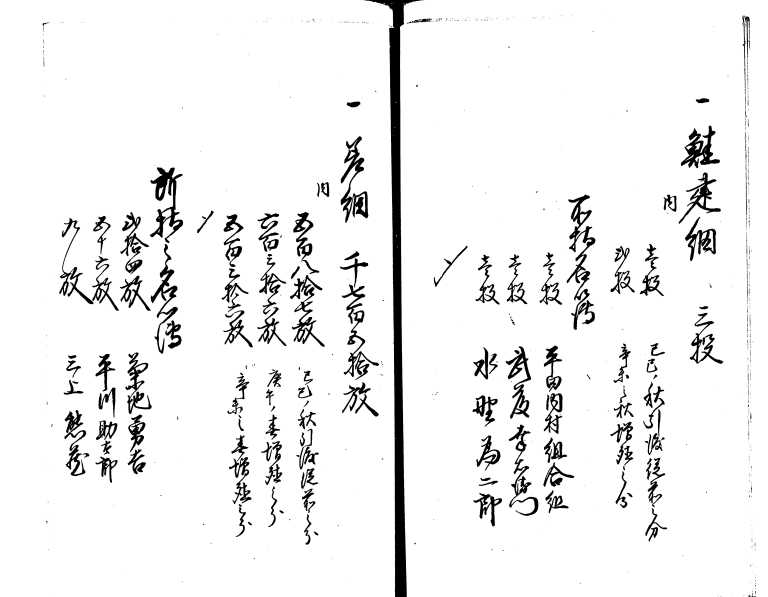 一 鮭建網 三投
内
壱投 己巳ノ秋引渡従前之分
弐投 辛未之秋増殖之分
所持名簿
壱投 平田内村組合組
壱投 武藤幸右衛門
壱投 水野為二郎
一 差網 千七百五拾放
内
五百八拾七放 己巳ノ秋引渡従前之分
六百三拾六放 庚午ノ春増殖之分
五百三拾六放 辛未之春増殖之分
所持之名簿
弐拾四放 菊地勇吉
五十六放 平川助太郎
九ノ放 三上熊蔵